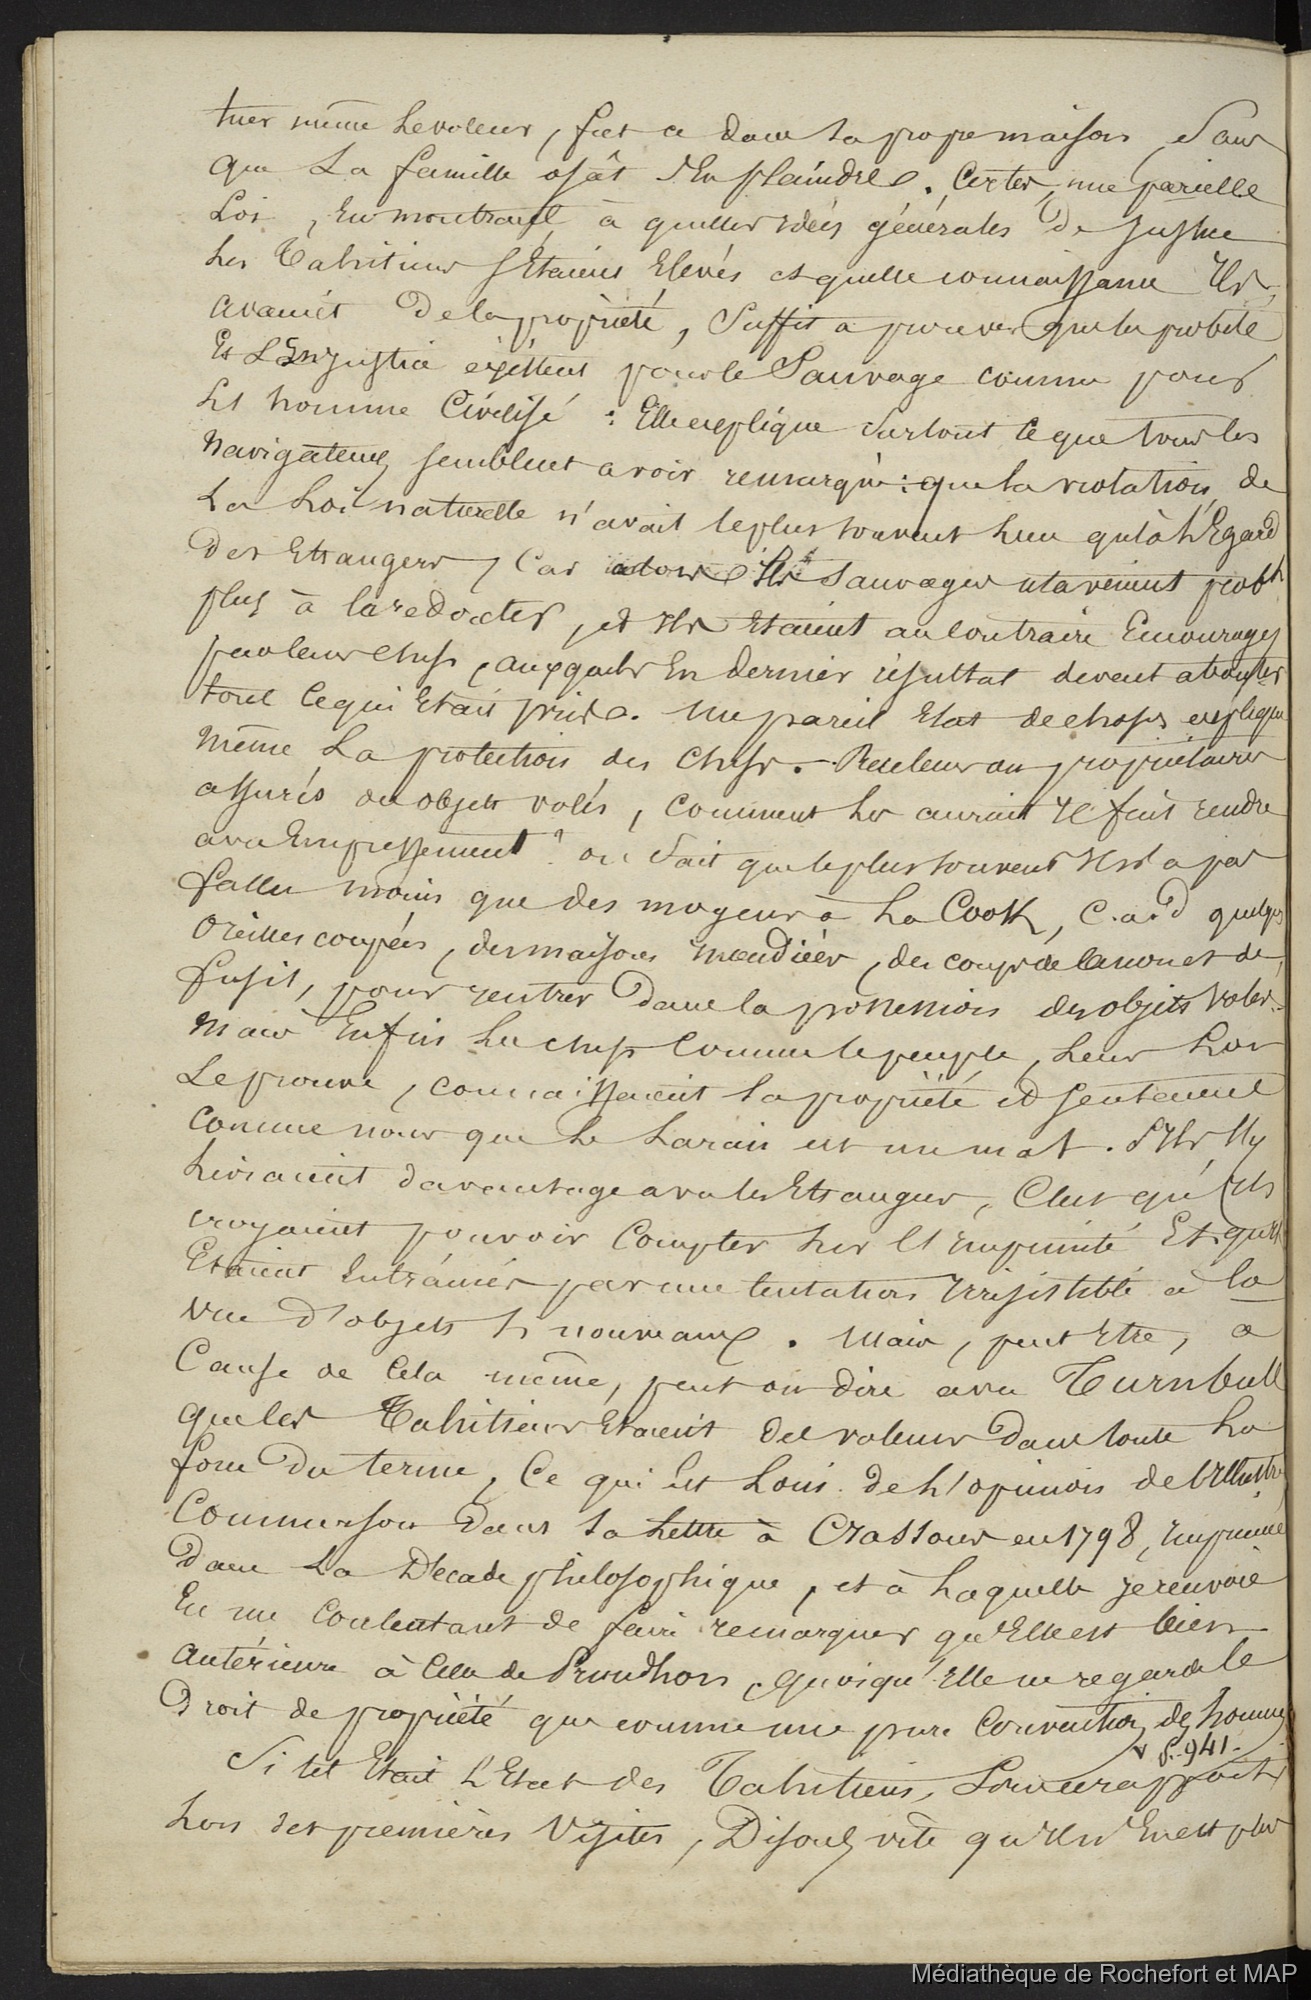 tuer même le voleur, fut ce dans sa propre maison, sans
que la famille osât s'en plaindre. Certes, une pareille
Loi, en montrant à quelles idées générales de justice
les Tahitiens s'étaient élevés et quelle connaissance ils
avaient de la propriété, suffit a prouver que la probité
et l'injustice existent pour le Sauvage comme pour
l'homme Civilisé : Elle explique surtout ce que tous les
Navigateurs semblent avoir remarqué : que la violation de
la Loi naturelle n'avait le plus souvent lieu qu'à l'Egard
des Etrangers, Car alors les Sauvages n'avaient
plus à la redouter, et ils étaient au contraire Encouragés
par leurs chefs, auxquels En dernier résultat devait aboutir
tout ce qui était pris. Un pareil Etat de choses explique
même la protection des chefs. - Receleurs ou propriétaires
assurés des objets volés, comment les auraient ils fait rendre
avec Empressement ? on sait que le plus souvent il n'a pas
fallu moins que des moyens à la Cook, C.a.d quelques
oreilles coupées, des maisons incendiées, des coups de canon et de
fusil, pour rentrer dans la possession des objets volés.
Mais Enfin les chefs comme le peuple, leur Loi
le prouve, connaissaient la propriété et sentaient
comme nous que le larcin est un mal. S'ils s'y
livraient davantage avec les Etrangers, C'est qu'ils
croyaient pouvoir Compter sur l'impunité Et qu'ils
Etaient entraînés par une tentation irrésistible à la
vue d'objets si nouveaux. Mais, peut être, a
Cause de Cela même, peut on dire avec Turnbull
que les Tahitiens étaient des voleurs dans toute la
force du terme, Ce qui est loin de l'opinion de l'illustre
Commerson dans sa lettre à Crassous en 1798, imprimée
dans la Décade philosophique, et à laquelle je renvoie
En me contentant de faire remarquer qu'Elle est bien
Antérieure à celle de Prudhon, quoiqu'Elle ne regarde le
Droit de propriété que comme une pure Convention des hommes
v p. 941.
Si tel était l'Etat des Tahitiens, sous ce rapport,
Lors des premières visites, Disons vite qu'il n'en est plus
Médiathèque de Rochefort et MAP